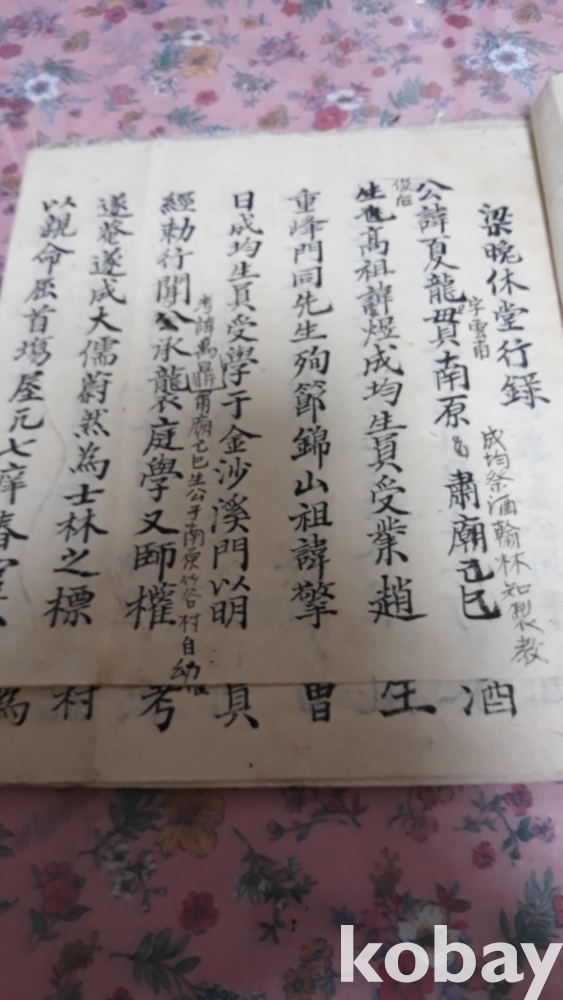 梁晚休堂行録
公諱夏龍貫南原 肅廟己巳
字雲甫
成均祭酒翰林知製教
生也高祖諱煜成均生員受業趙
俊后
重峰門同先生殉節錦山祖諱擎
日成均生員受學于金沙溪門以明
考諱萬鼎
肅廟己巳生公于南原竹谷村自幼
經勅行聞公承襲庭學又師權
遂菴遂成大儒蔚然為士林之標
以親命屈首場屋凡七庠春
酒
生
曾
員
考
村
為
kobay